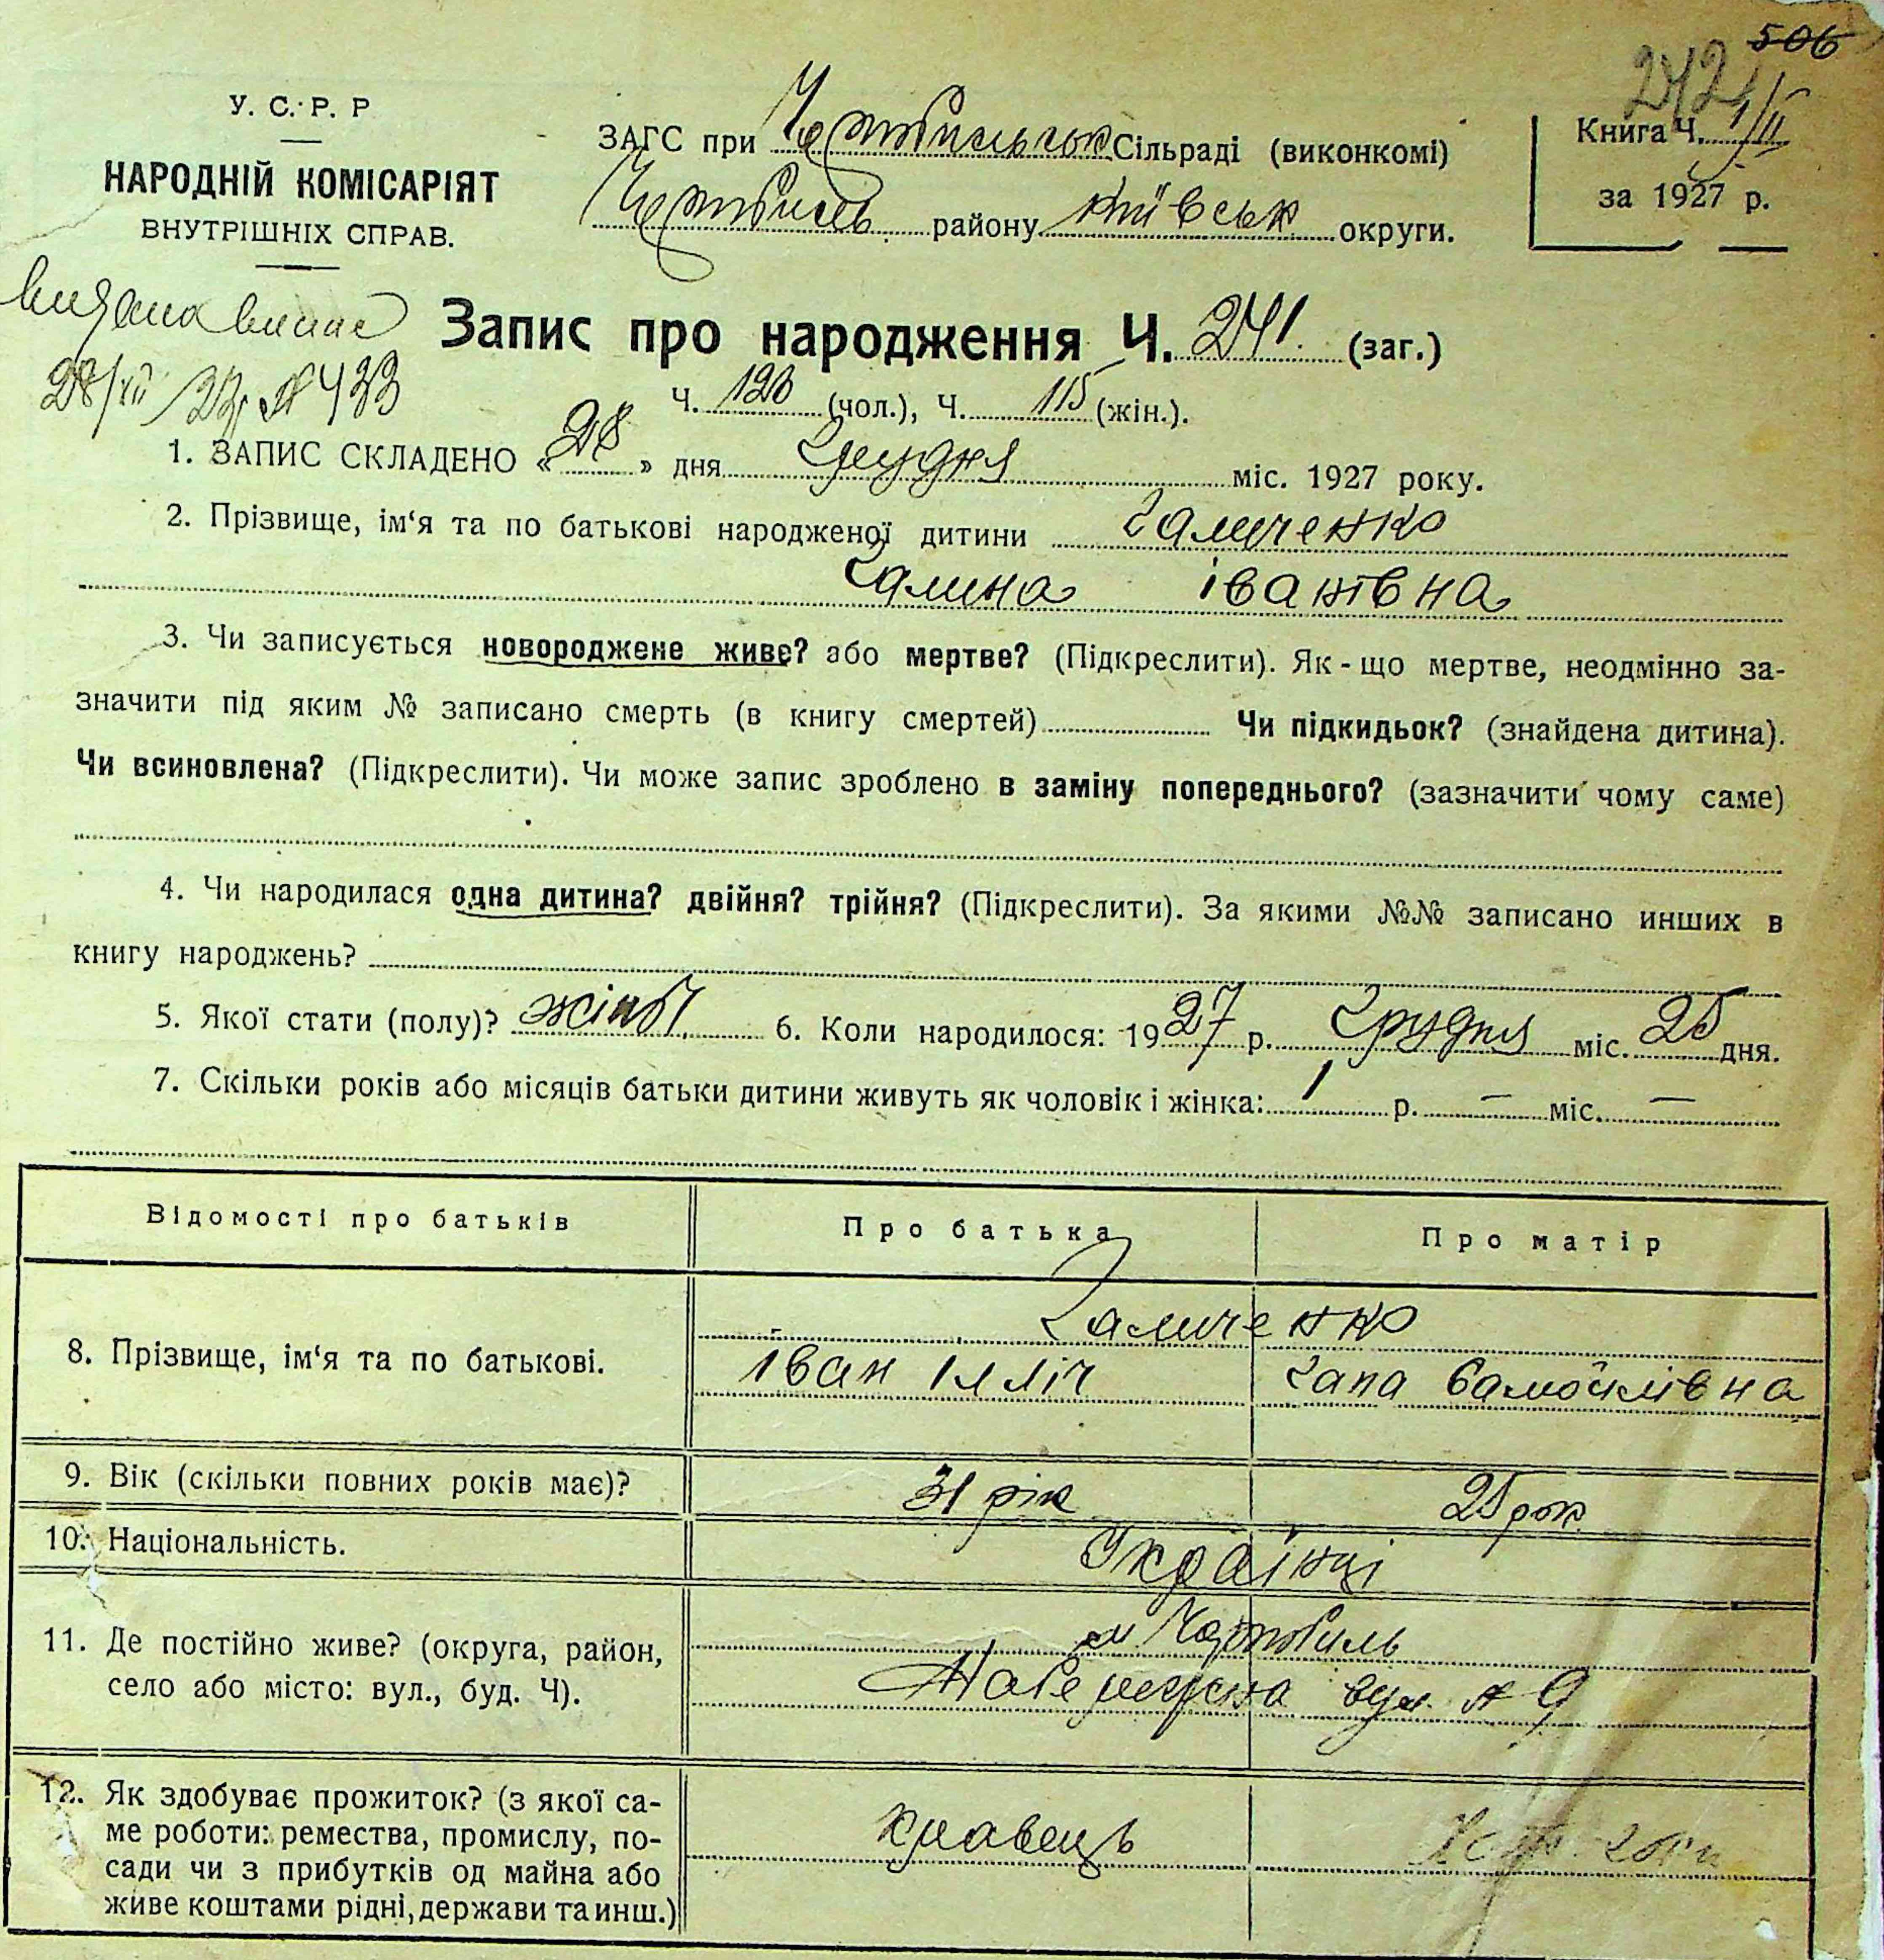 506
242
У. С. Р. Р
НАРОДНІЙ КОМІСАРІЯТ
ВНУТРІШНІХ СПРАВ.
ЗАГС при Чорнобильськ Сільраді (виконкомі)
Чорнобиль району Київськ округи.
Книга Ч. 1/II
за 1927 р.
видана випис
28/XII 27р № 433
Запис про народження Ч. 241. (заг.)
Ч. 126 (чол.), Ч. 115 (жін.).
1. ЗАПИС СКЛАДЕНО «28» дня грудня міс. 1927 року.
2. Прізвище, ім‘я та по батькові народженої дитини Галиченко
Галина Іванівна
3. Чи записується новороджене живе? або мертве? (Підкреслити). Як-що мертве, неодмінно за-
значити під яким № записано смерть (в книгу смертей) Чи підкидьок? (знайдена дитина).
Чи всиновлена? (Підкреслити). Чи може запис зроблено в заміну попереднього? (зазначити чому саме)
4. Чи народилася одна дитина? двійня? трійня? (Підкреслити). За якими №№ записано инших в
книгу народжень?
5. Якої стати (полу)? жіноч. 6. Коли народилося: 1927 р. Грудня міс. 25 дня.
7. Скільки років або місяців батьки дитини живуть як чоловік і жінка: 1 р. — міс. —
Відомості про батьків Про батька Про матір
8. Прізвище, ім‘я та по батькові.
Галиченко
Іван Ілліч Гапа Самойлівна
9. Вік (скільки повних років має)? 31 рік 25 рок
10. Національність. Українці
11. Де постійно живе? (округа, район,
село або місто: вул., буд. Ч).
м Чорнобиль
Набережна вул. № 9
12. Як здобуває прожиток? (з якої са-
ме роботи: ремества, промислу, по-
сади чи з прибутків од майна або
живе коштами рідні, держави та инш.)
кравець